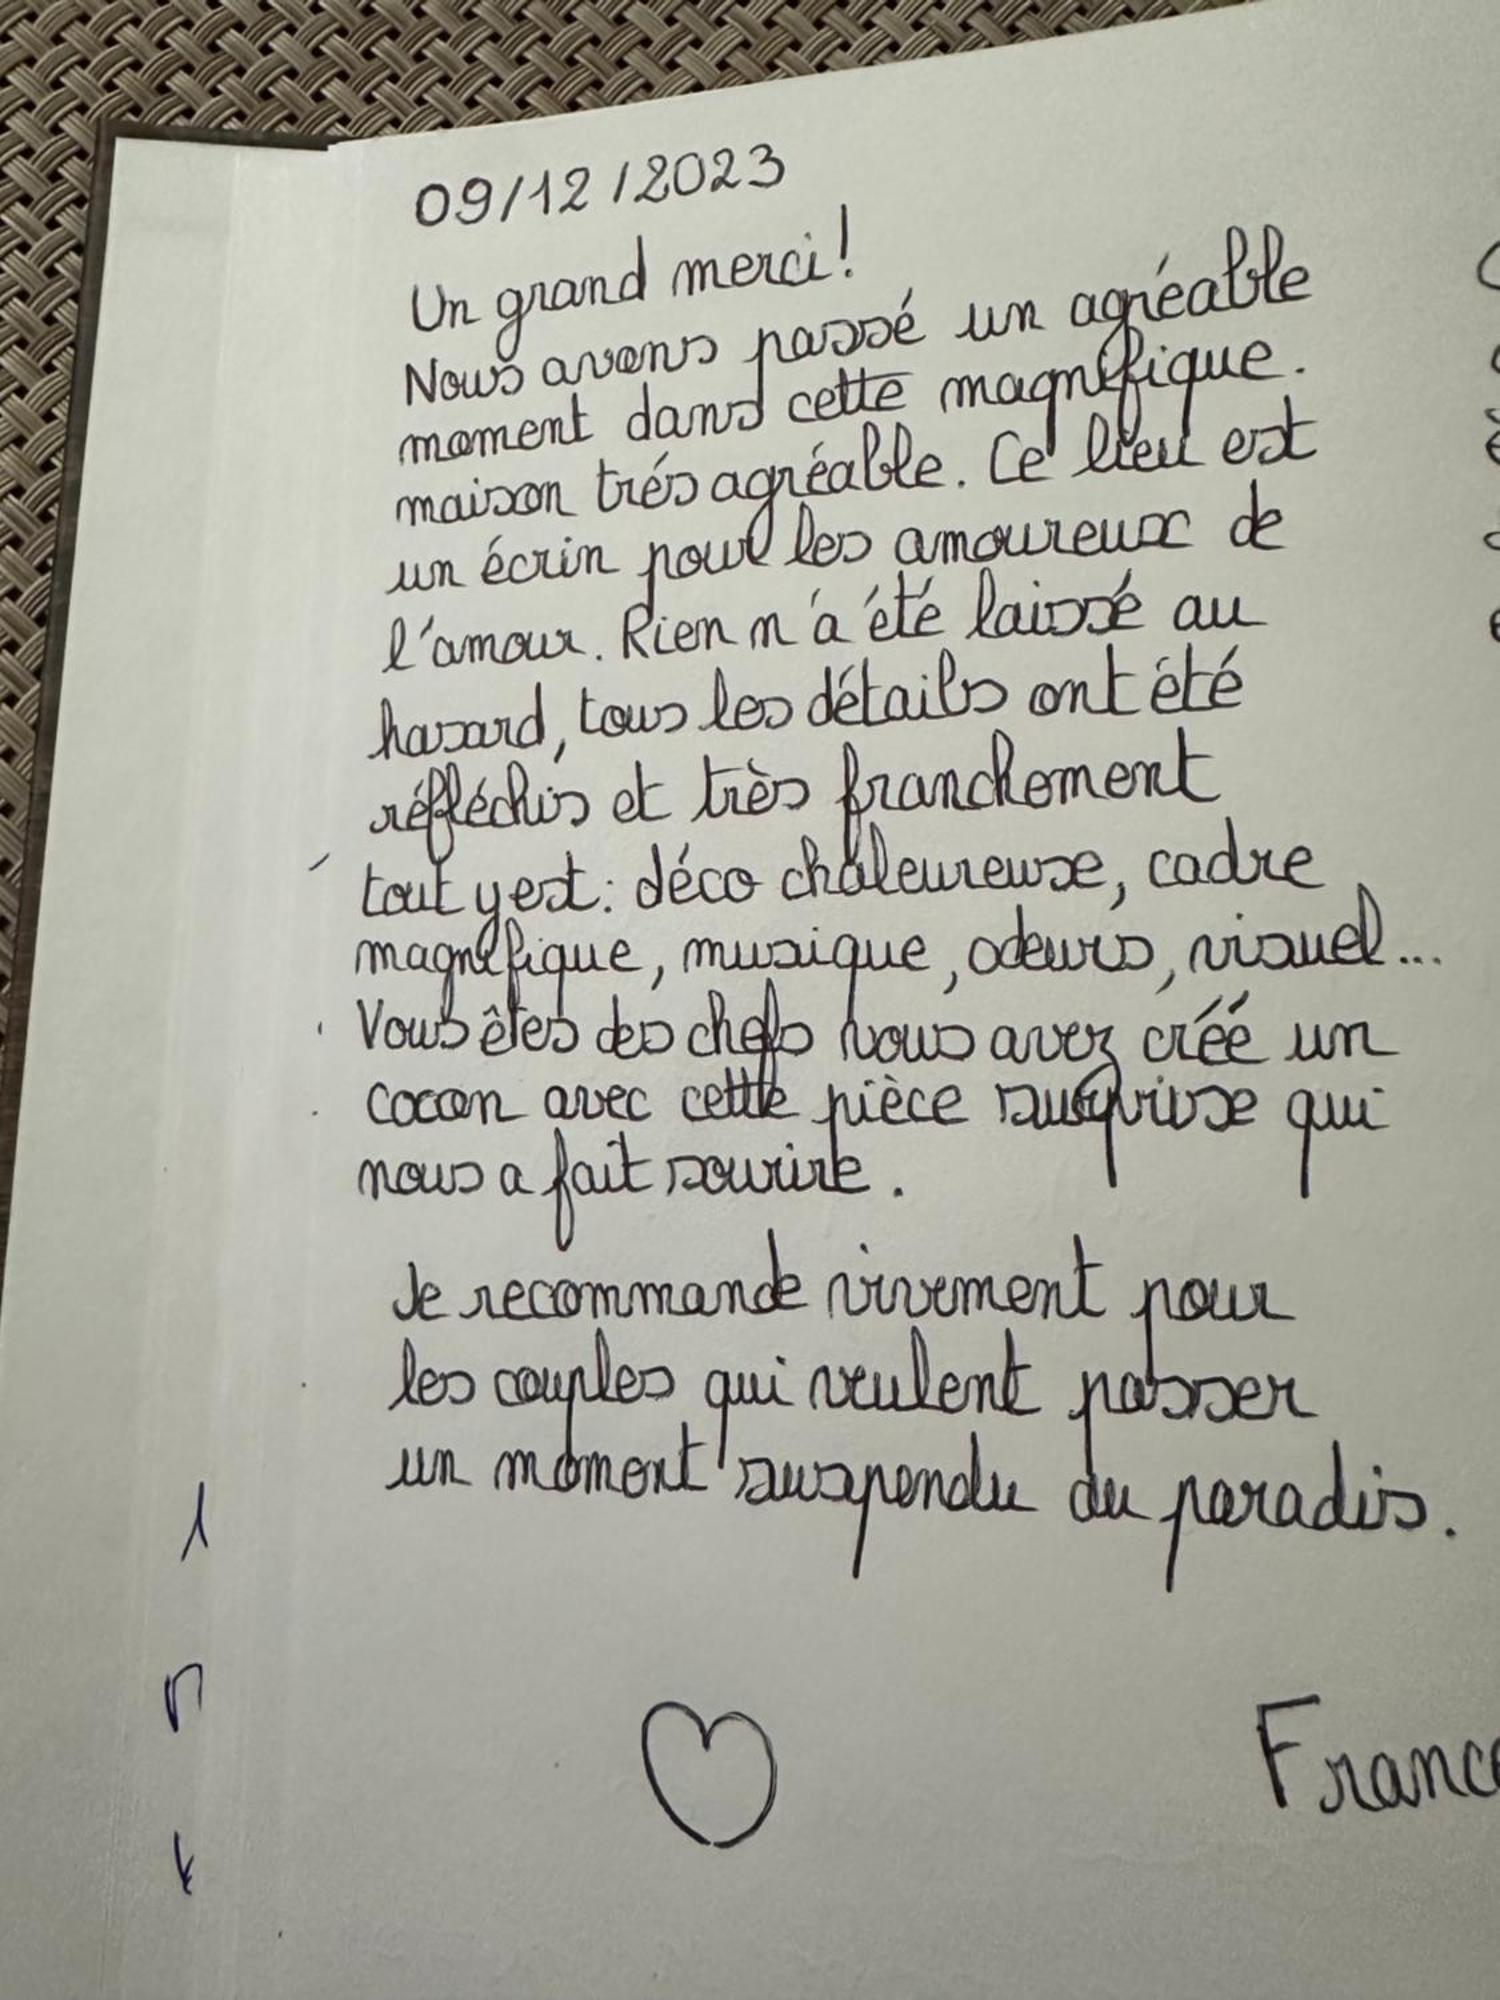 09/12/2023
Un grand merci!
Nous avons passé un agréable
moment dans cette magnifique.
maison trés agréable. Ce lieu est
un écrin pour les amoureux de
l'amour. Rien n'a été laissé au
hasard, tous les détails ont été
réfléchis et très franchement
tout y est: déco chaleureuse, cadre
magnifique, musique, odeurs, visuel...
Vous êtes des chefs vous avez créé un
cocon avec cette pièce surprise qui
nous a fait sourire.
Je recommande vivement pour
les couples qui veulent passer
un moment suspendu au paradis.